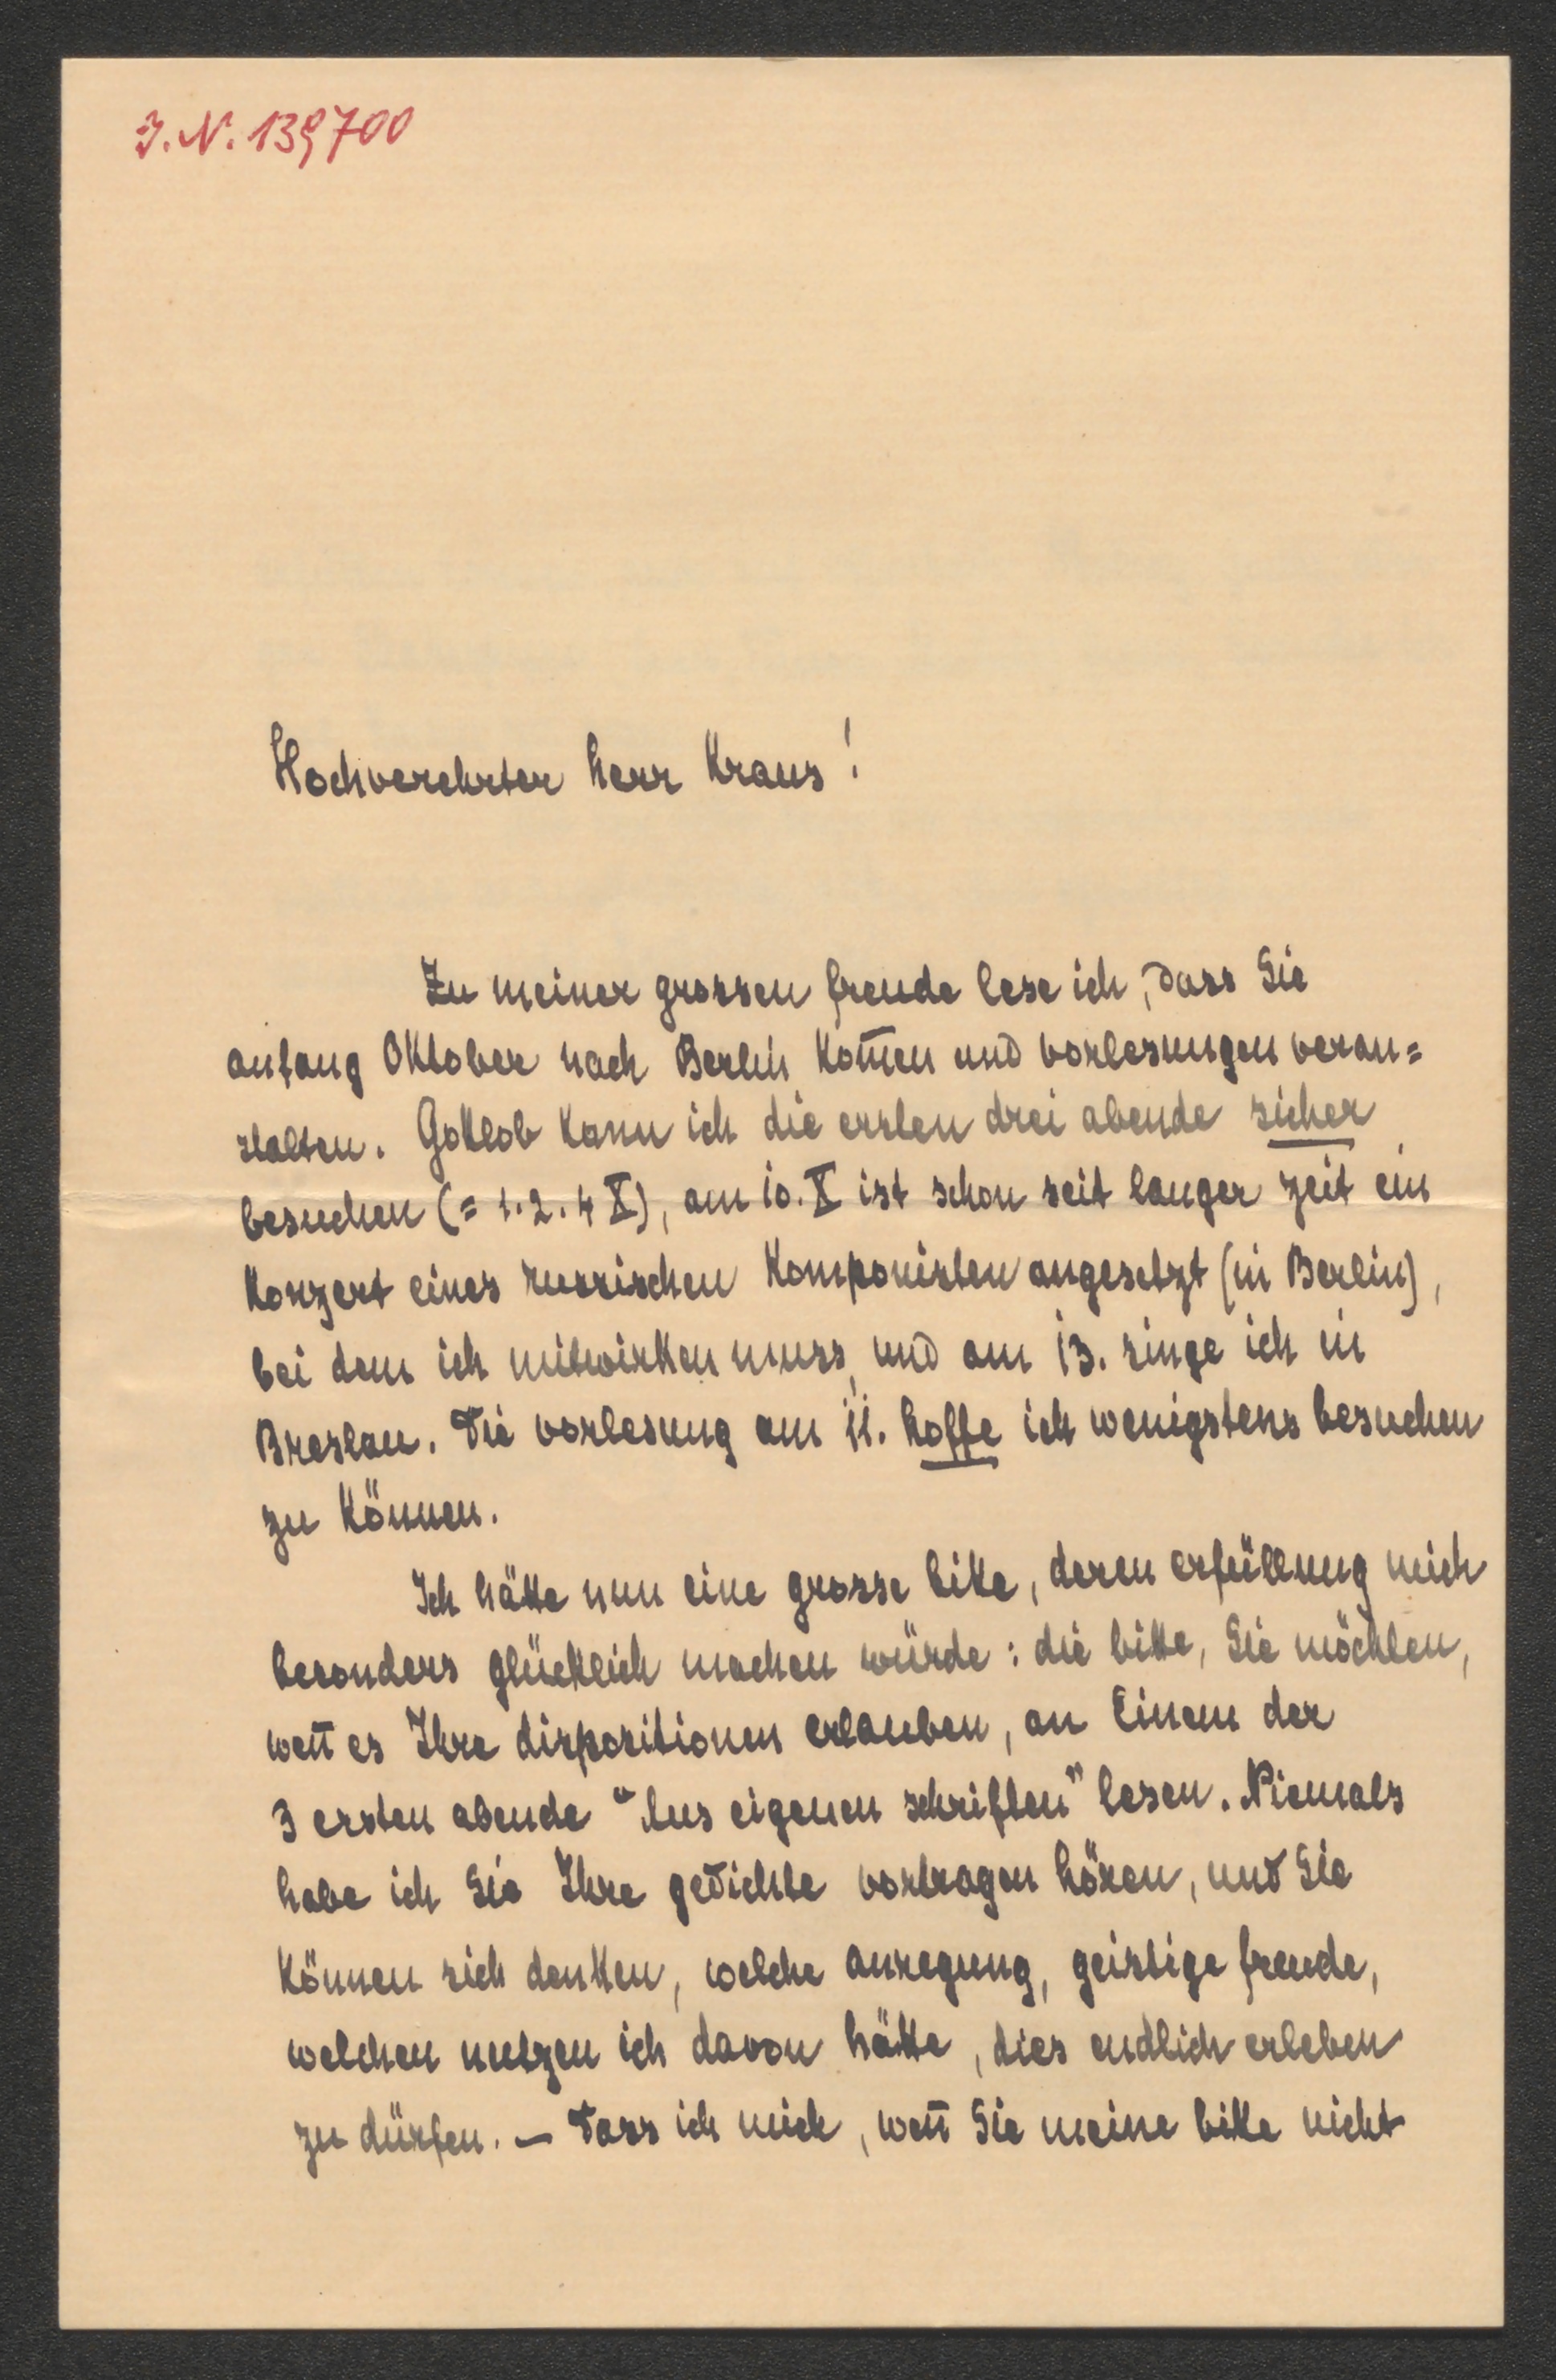 I.N. 139700
Hochverehrter herr Kraus!
Zu meiner grossen freude lese ich, dass Sie
anfang Oktober nach Berlin kom̅en und vorlesungen veran=
stalten. Gottlob kann ich die ersten drei abende sicher
besuchen (= 1. 2. 4 X), am 10. X ist schon seit langer zeit ein
Konzert eines russischen Komponisten angesetzt (in Berlin),
bei dem ich mitwirken muss, und am 13. singe ich in
Breslau. Die vorlesung am 11. hoffe ich wenigstens besuchen
zu können.
Ich hätte nun eine grosse bitte, deren erfüllung mich
besonders glücklich machen würde: die bitte, Sie möchten,
wen̅ es Ihre dispositionen erlauben, an Einem der
3 ersten abende "Aus eigenen schriften" lesen. Niemals
habe ich Sie Ihre gedichte vortragen hören, und Sie
können sich denken, welche anregung, geistige freude,
welchen nutzen ich davon hätte, dies endlich erleben
zu dürfen. – Dass ich mich, wen̅ Sie meine bitte nicht